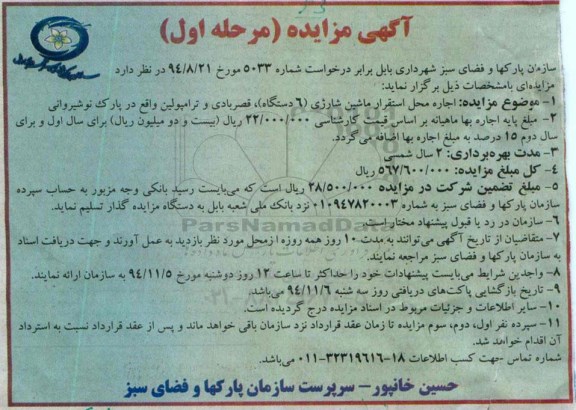 آگهی مزایده (مرحله اول)
سازمان پارکها و فضای سبز شهرداری بابل برابر درخواست شماره ۵۰۳۳ مورخ ۹۴/۸/۲۱ در نظر دارد
مزایده‌ای بامشخصات ذیل برگزار نماید:
۱- موضوع مزایده: اجاره محل استقرار ماشین شارژی (۶ دستگاه)، قصربادی و ترامپولین واقع در پارک نوشیروانی
۲- مبلغ پایه اجاره بها ماهیانه بر اساس قیمت کارشناسی ۲۲/۰۰۰/۰۰۰ ریال (بیست و دو میلیون ریال) برای سال اول و برای
سال دوم ۱۵ درصد به مبلغ اجاره بها اضافه می‌گردد.
۳- مدت بهره‌برداری: ۲ سال شمسی
۴- کل مبلغ مزایده: ۵۶۷/۶۰۰/۰۰۰ ریال
۵- مبلغ تضمین شرکت در مزایده ۲۸/۵۰۰/۰۰۰ ریال است که می‌بایست رسید بانکی وجه مزبور به حساب سپرده
سازمان پارکها و فضای سبز به شماره ۰۱۰۹۴۷۸۲۰۰۰۳ نزد بانک ملی شعبه بابل به دستگاه مزایده گذار تسلیم نماید.
۶- سازمان در رد یا قبول پیشنهاد مختار است.
ParsNamadData
۷- متقاضیان از تاریخ آگهی می‌توانند به مدت ۱۰ روز همه روزه ازمحل مورد نظر بازدید به عمل آورند و جهت دریافت اسناد
به سازمان پارکها و فضای سبز مراجعه نمایند.
۸- واجدین شرایط می‌بایست پیشنهادات خود را حداکثر تا ساعت ۱۳ روز دوشنبه مورخ ۹۴/۱۱/۵ به سازمان ارائه نمایند.
۹- تاریخ بازگشایی پاکت‌های دریافتی روز سه شنبه ۹۴/۱۱/۶ می‌باشد.
۱۰- سایر اطلاعات و جزئیات مربوط در اسناد مزایده درج گردیده است.
۱۱- سپرده نفر اول، دوم، سوم مزایده تا زمان عقد قرارداد نزد سازمان باقی خواهد ماند و پس از عقد قرارداد نسبت به استرداد
آن اقدام خواهد شد.
شماره تماس جهت کسب اطلاعات ۱۸-۳۲۳۱۹۶۱۶-۰۱۱ می‌باشد.
حسین خانپور – سرپرست سازمان پارکها و فضای سبز